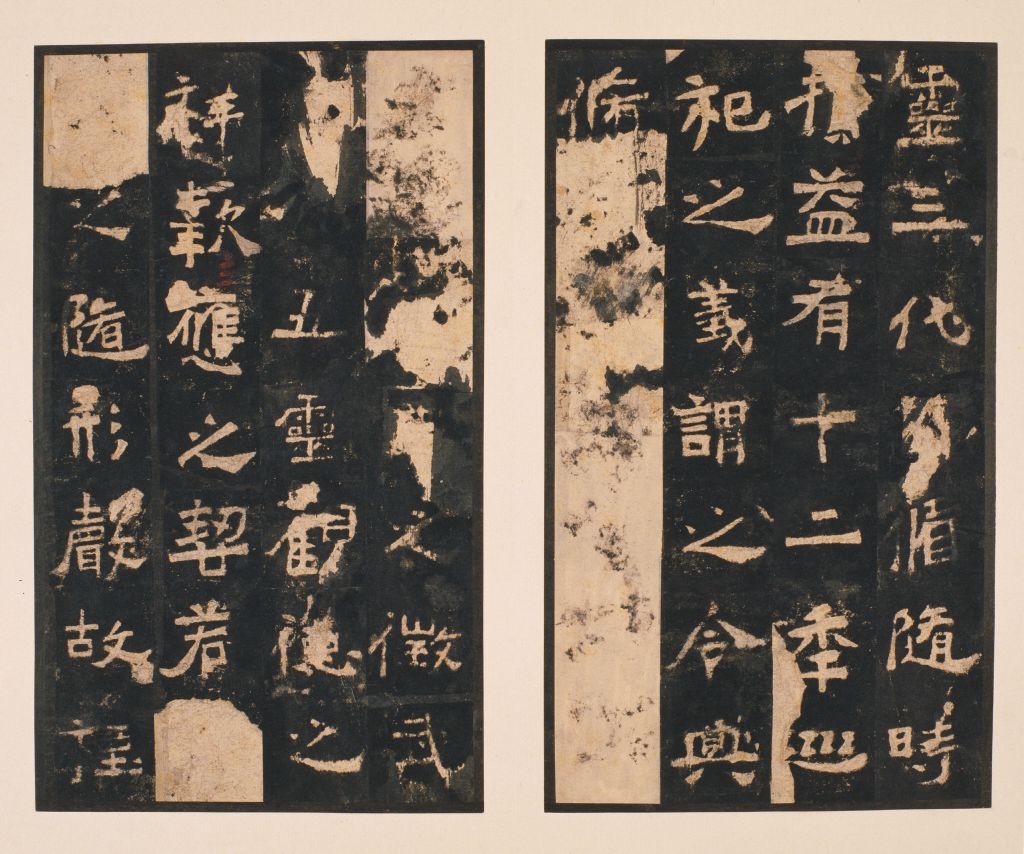 靈三代循隨時
益有十二季巡
祀之義謂之令典
脩
之徵式
五靈觀德之
祥應之契若
之隨形聲故